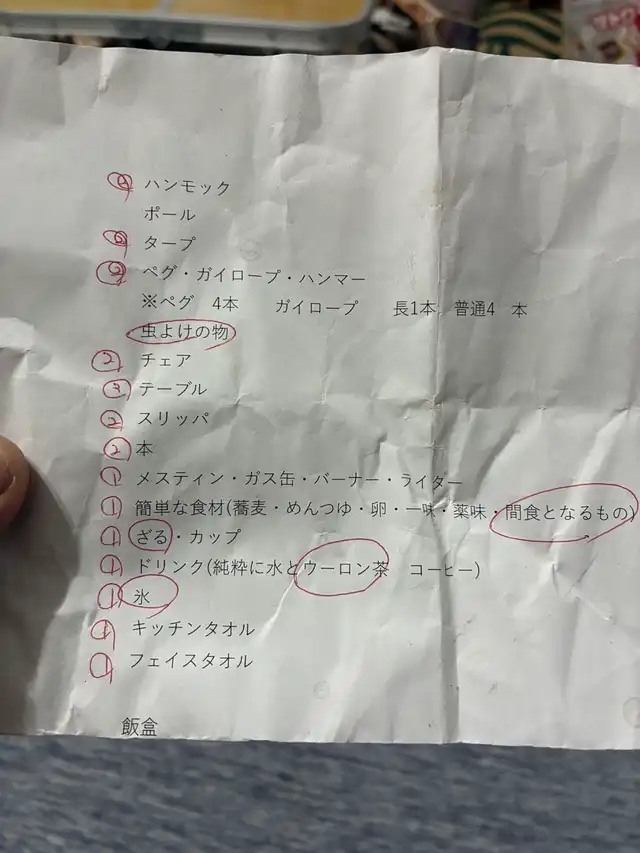 ハンモック
ポール
② タープ
② ペグ・ガイロープ・ハンマー
※ペグ 4本 ガイロープ 長1本 普通4 本
虫よけの物
② チェア
③ テーブル
② スリッパ
② 本
① メスティン・ガス缶・バーナー・ライダー
① 簡単な食材(蕎麦・めんつゆ・卵・一味・薬味・間食となるもの)
① ざる・カップ
① ドリンク(純粋に水とウーロン茶 コーヒー)
① 氷
① キッチンタオル
① フェイスタオル
飯盒